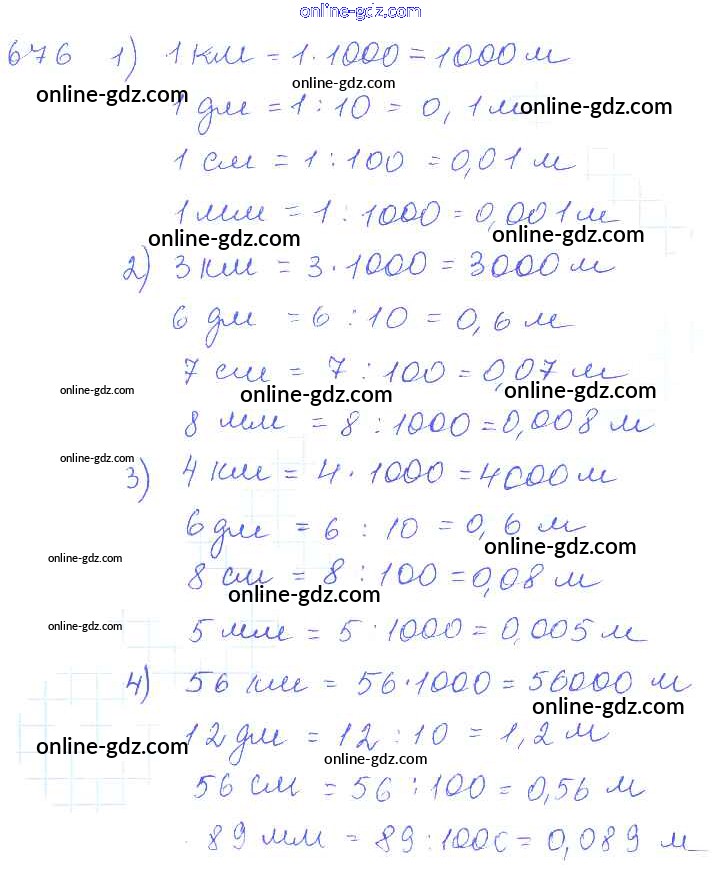 online-gdz.com
676 1) 1 км = 1·1000 = 1000 м
online-gdz.com
online-gdz.com
1 дм = 1 : 10 = 0,1 м
online-gdz.com
1 см = 1 : 100 = 0,01 м
1 мм = 1 : 1000 = 0,001 м
online-gdz.com
online-gdz.com
2) 3 км = 3·1000 = 3000 м
6 дм = 6 : 10 = 0,6 м
7 см = 7 : 100 = 0,07 м
online-gdz.com
online-gdz.com
online-gdz.com
8 мм = 8 : 1000 = 0,008 м
online-gdz.com
3) 4 км = 4·1000 = 4000 м
6 дм = 6 : 10 = 0,6 м
online-gdz.com
online-gdz.com
8 см = 8 : 100 = 0,08 м
online-gdz.com
online-gdz.com
5 мм = 5 · 1000 = 0,005 м
4) 56 км = 56·1000 = 56000 м
online-gdz.com
12 дм = 12 : 10 = 1,2 м
online-gdz.com
online-gdz.com
56 см = 56 : 100 = 0,56 м
89 мм = 89 : 1000 = 0,089 м